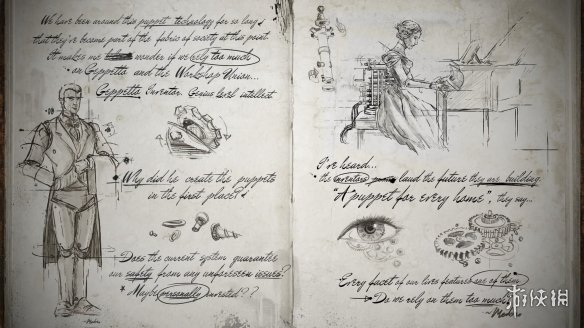 We have been around this puppet technology for so long
that they've become part of the fabric of society at this point.
It makes me wonder if we rely too much
on Geppetto and the Workshop Union...
Geppetto Inventor. Genius level intellect.
Why did he create the puppets
in the first place?
Does the current system guarantee
our safety from any unforeseen issues?
Maybe personally invested???
I've heard...
the inventors laud the future they are building.
"A puppet for every home", they say...
Every facet of our lives features one of them
Do we rely on them too much?
游侠网